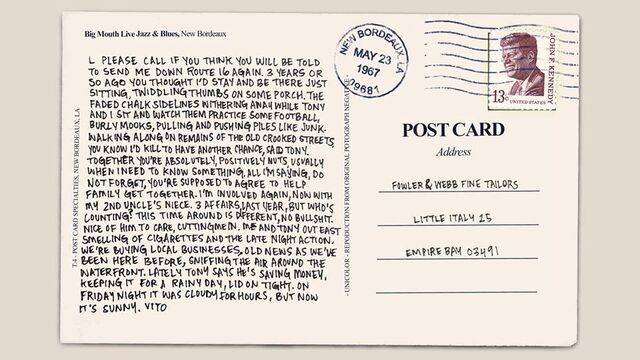 Big Mouth Live Jazz & Blues, New Bordeaux
L PLEASE CALL IF YOU THINK YOU WILL BE TOLD
TO SEND ME DOWN ROUTE 16 AGAIN. 3 YEARS OR
SO AGO YOU THOUGHT I'D STAY AND BE THERE JUST
SITTING, TWIDDLING THUMBS ON SOME PORCH. THE
FADED CHALK SIDELINES WITHERING AWAY WHILE TONY
AND I SIT AND WATCH THEM PRACTICE SOME FOOTBALL,
BURLY MOOKS, PULLING AND PUSHING PILES LIKE JUNK.
WALKING ALONG ON REMAINS OF THE OLD CROOKED STREETS
YOU KNOW I'D KILL TO HAVE ANOTHER CHANCE, SAID TONY.
TOGETHER YOU'RE ABSOLUTELY, POSITIVELY NUTS USUALLY
WHEN I NEED TO KNOW SOMETHING, ALL I'M SAYING, DO
NOT FORGET, YOU'RE SUPPOSED TO AGREE TO HELP
FAMILY GET TOGETHER. I'M INVOLVED AGAIN, NOW WITH
MY 2ND UNCLE'S NIECE. 3 AFFAIRS LAST YEAR, BUT WHO'S
COUNTING? THIS TIME AROUND IS DIFFERENT, NO BULLSHIT.
NICE OF HIM TO CARE, CUTTING ME IN, ME AND TONY OUT EAST
SMELLING OF CIGARETTES AND THE LATE NIGHT ACTION.
WE'RE BUYING LOCAL BUSINESSES, OLD NEWS AS WE'VE
BEEN HERE BEFORE, SNIFFING THE AIR AROUND THE
WATERFRONT. LATELY TONY SAYS HE'S SAVING MONEY,
KEEPING IT FOR A RAINY DAY, LID ON TIGHT. ON
FRIDAY NIGHT IT WAS CLOUDY FOR HOURS, BUT NOW
IT'S SUNNY. VITO
T.4 - POST CARD SPECIALTIES, NEW BORDEAUX, LA
- UNICOLOR - REPODUCTION FROM ORIGINAL POTOGRAPH NEGATIVE -
NEW BORDEAUX, LA
MAY 23
1967
79681
JOHN F. KENNEDY
13c UNITED STATES
POST CARD
Address
FOWLER & WEBB FINE TAILORS
LITTLE ITALY 25
EMPIRE BAY 03491